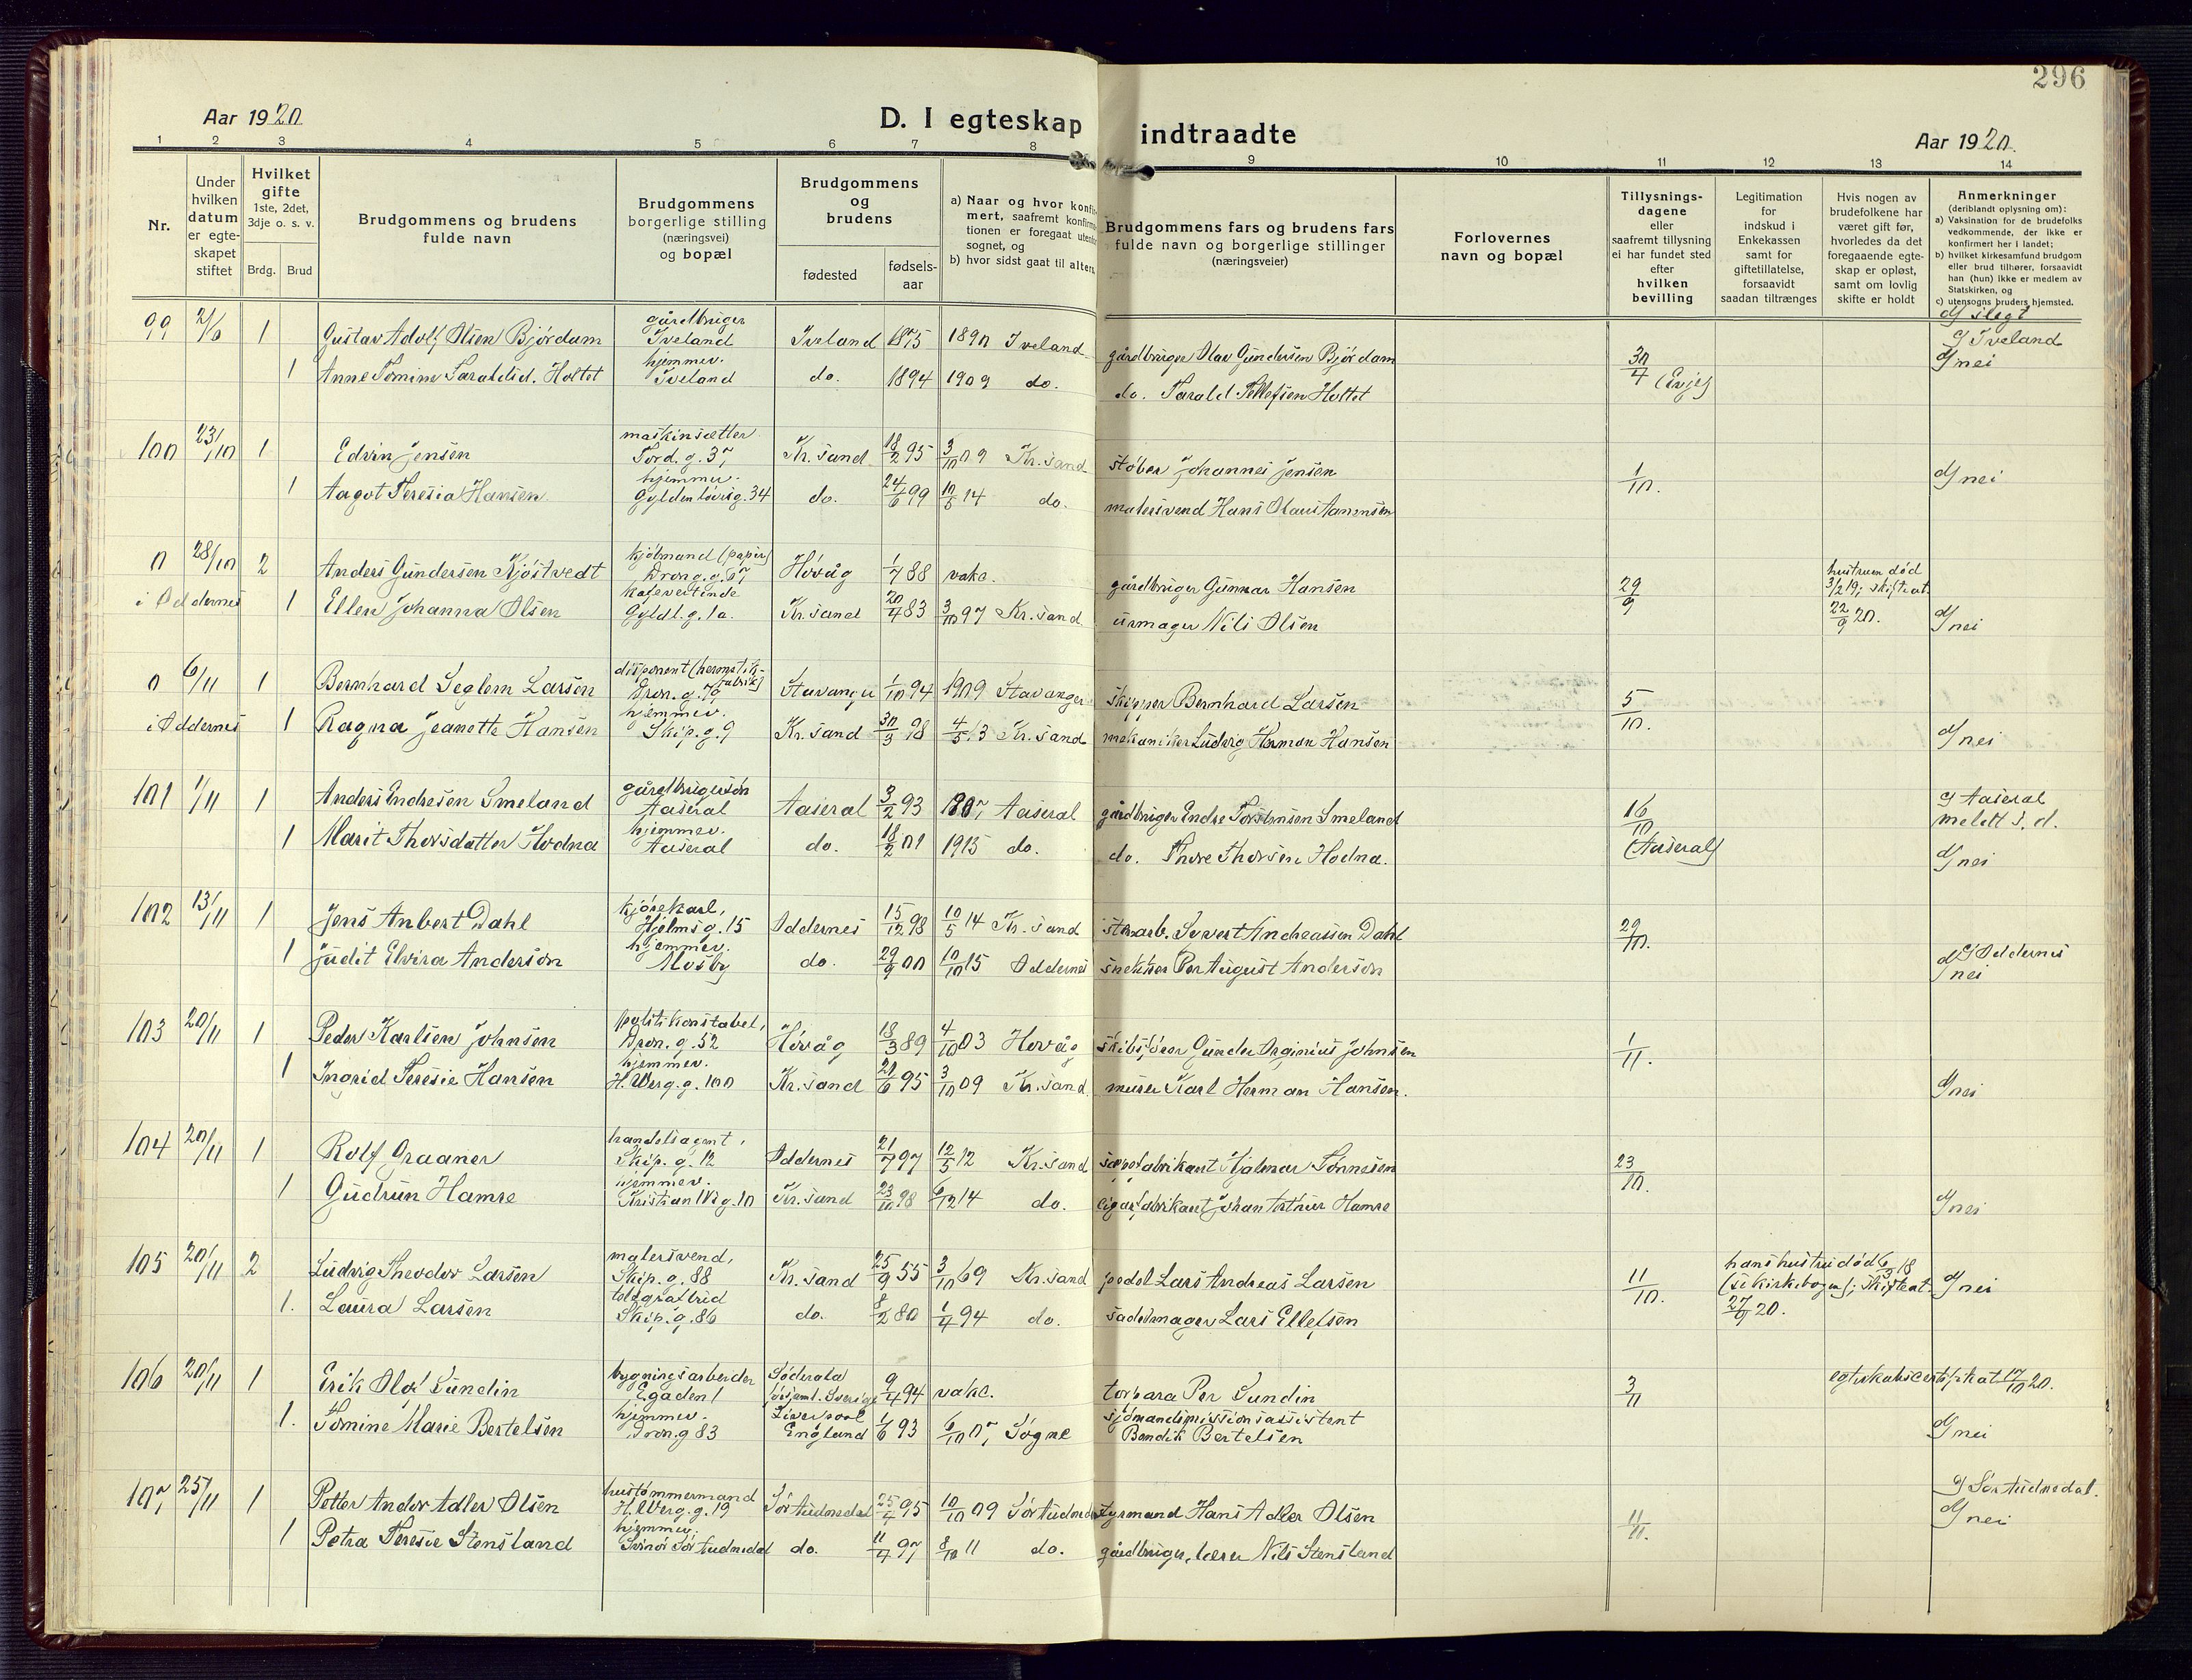 296
Aar 1920
D. I egteskap indtraadte
Aar 1920.
1 2 3 4 5 6 7 8 9 10 11 12 13 14
Nr.
Under hvilken datum er egteskapet stiftet
Hvilket gifte 1ste, 2det, 3dje o. s. v.
Brdg. Brud
Brudgommens og brudens fulde navn
Brudgommens borgerlige stilling (næringsvei) og bopæl
Brudgommens og brudens
fødested
fødselsaar
a) Naar og hvor konfirmert, saafremt konfirmationen er foregaat utenfor sognet, og
b) hvor sidst gaat til alters,
Brudgommens fars og brudens fars fulde navn og borgerlige stillinger (næringsveier)
Forlovernes navn og bopæl
Tillysningsdagene eller saafremt tillysning ei har fundet sted efter hvilken bevilling
Legitimation for indskud i Enkekassen samt for giftetillatelse, forsaavidt saadan tiltrænges
Hvis nogen av brudefolkene har været gift før, hvorledes da det foregaaende egteskap er opløst, samt om lovlig skifte er holdt
Anmerkninger (deriblandt oplysning om):
a) Vaksination for de brudefolks vedkommende, der ikke er konfirmert her i landet;
b) hvilket kirkesamfund brudgom eller brud tilhører, forsaavidt han (hun) ikke er medlem av Statskirken, og
c) utensogns bruders hjemsted.
d) slegt
99 2/6 1 Gustav Adolf Olsen Bjørdam gårdbruger Iveland Iveland 1875 1890 Iveland gårdbruger Olav Gundersen Bjørdam 30/4 (Evje) c) Iveland
1 Anne Tomine Taraldsd. Holtet hjemmev. Iveland do. 1894 1909 do. do. Tarald Tellefsen Holtet d) nei
100 23/10 1 Edvin Jensen maskinsætter Tord.g. 37 Kr.sand 18/2 95 3/10 09 Kr.sand støber Johannes Jensen 1/10. d) nei
1 Aagot Teresia Hansen hjemmev. Gyldenløvsg. 34 do. 24/6 99 10/5 14 do. malersvend Hans Olaus Hansen
0 28/10 2 Anders Gundersen Kjøstvedt kjøbmand (papir) Dron.g. 67 Høvåg 1/7 88 vaks. gårdbruger Gunnar Hansen 29/9 hustruen død 3/2 19; skifteat. 22/9 20.
i Oddernes 1 Ellen Johanna Olsen kafevertinde Gyldl.g. 1a. Kr.sand 20/4 83 3/10 97 Kr.sand urmager Nils Olsen d) nei
0 6/11 1 Bernhard Seglem Larsen disponent (hermetikfabrik) Dron.g. 79 Stavanger 1/10 94 1909 Stavanger skipper Bernhard Larsen 5/10.
i Oddernes 1 Ragna Jeanette Hansen hjemmev. Skip.g. 9 Kr.sand 30/3 98 4/5 13 Kr.sand mekaniker Ludvig Herman Hansen d) nei
101 1/11 1 Anders Endresen Smeland gårdbrugersøn Aaseral Aaseral 3/2 93 1907 Aaseral gårdbruger Endre Torstensen Smeland 16/10 (Aaseral) c) Aaseral meldt s.d.
1 Marit Thorsdatter Hodna hjemmev. Aaseral do. 18/2 01 1915 do. do. Thore Thorsen Hodna. d) nei
102 13/11 1 Jens Anbert Dahl kjørekarl, Hjelmsg. 15 Oddernes 15/12 98 10/5 14 Kr.sand stenarb. Syvert Andreassen Dahl 29/10. c) Oddernes
1 Judit Elvira Anderson hjemmev. Mosby do. 29/9 00 10/10 15 Oddernes snekker Per August Anderson d) nei
103 20/11 1 Peder Karlsen Johnsen politikonstabel, Dron.g. 52 Høvåg 18/3 89 4/10 03 Høvåg skibsfører Gunder Arginius Johnsen 1/11.
1 Ingrid Teresie Hansen hjemmev. H.Werg.g. 100 Kr.sand 21/6 95 3/10 09 Kr.sand murer Karl Herman Hansen. d) nei
104 20/11 1 Rolf Graaner handelsagent, Skip.g. 12 Oddernes 21/7 97 12/5 12 Kr.sand sæpefabrikant Hjalmar Tønnesen 23/10.
1 Gudrun Hamre hjemmev. Kristian IVg. 10 Kr.sand 23/10 98 6/12 14 do. cigarfabrikant Johan Arthur Hamre d) nei
105 20/11 2 Ludvig Theodor Larsen malersvend, Skip.g. 88 Kr.sand 25/9 55 3/10 69 Kr.sand pedel Lars Andreas Larsen 11/10. hans hustru død 6/3 18 (se kirkebogen); skifteat. 27/9 20. d) nei
1. Laura Larsen Skip.g. 86 do. 8/2 80 1/4 94 do. sadelmager Lars Ellefsen
106 20/11 1 Erik Olof Sundin bygningsarbeider Egaden 1 Söderala Sverige 9/4 94 vaks. torpare Per Sundin 3/11 egteskabscertifikat 17/10 20.
1. Tomine Marie Bertelsen hjemmev. Dron.g 83 Liverpool England 1/6 93 6/10 07 Søgne sjømandsmissionsassistent Bendik Bertelsen d) nei
107 25/11 1 Petter Andor Adler Olsen hustømmermand H.Werg.g. 19 Sør Audnedal 25/4 95 10/10 09 Sør Audnedal styrmand Hans Adler Olsen 11/11. c) Sør Audnedal.
1 Petra Teresie Stensland hjemmev. Svinør Sør Audnedal do. 11/4 97 8/10 11 do. gårdbruger, lærer Nils Stensland d) nei